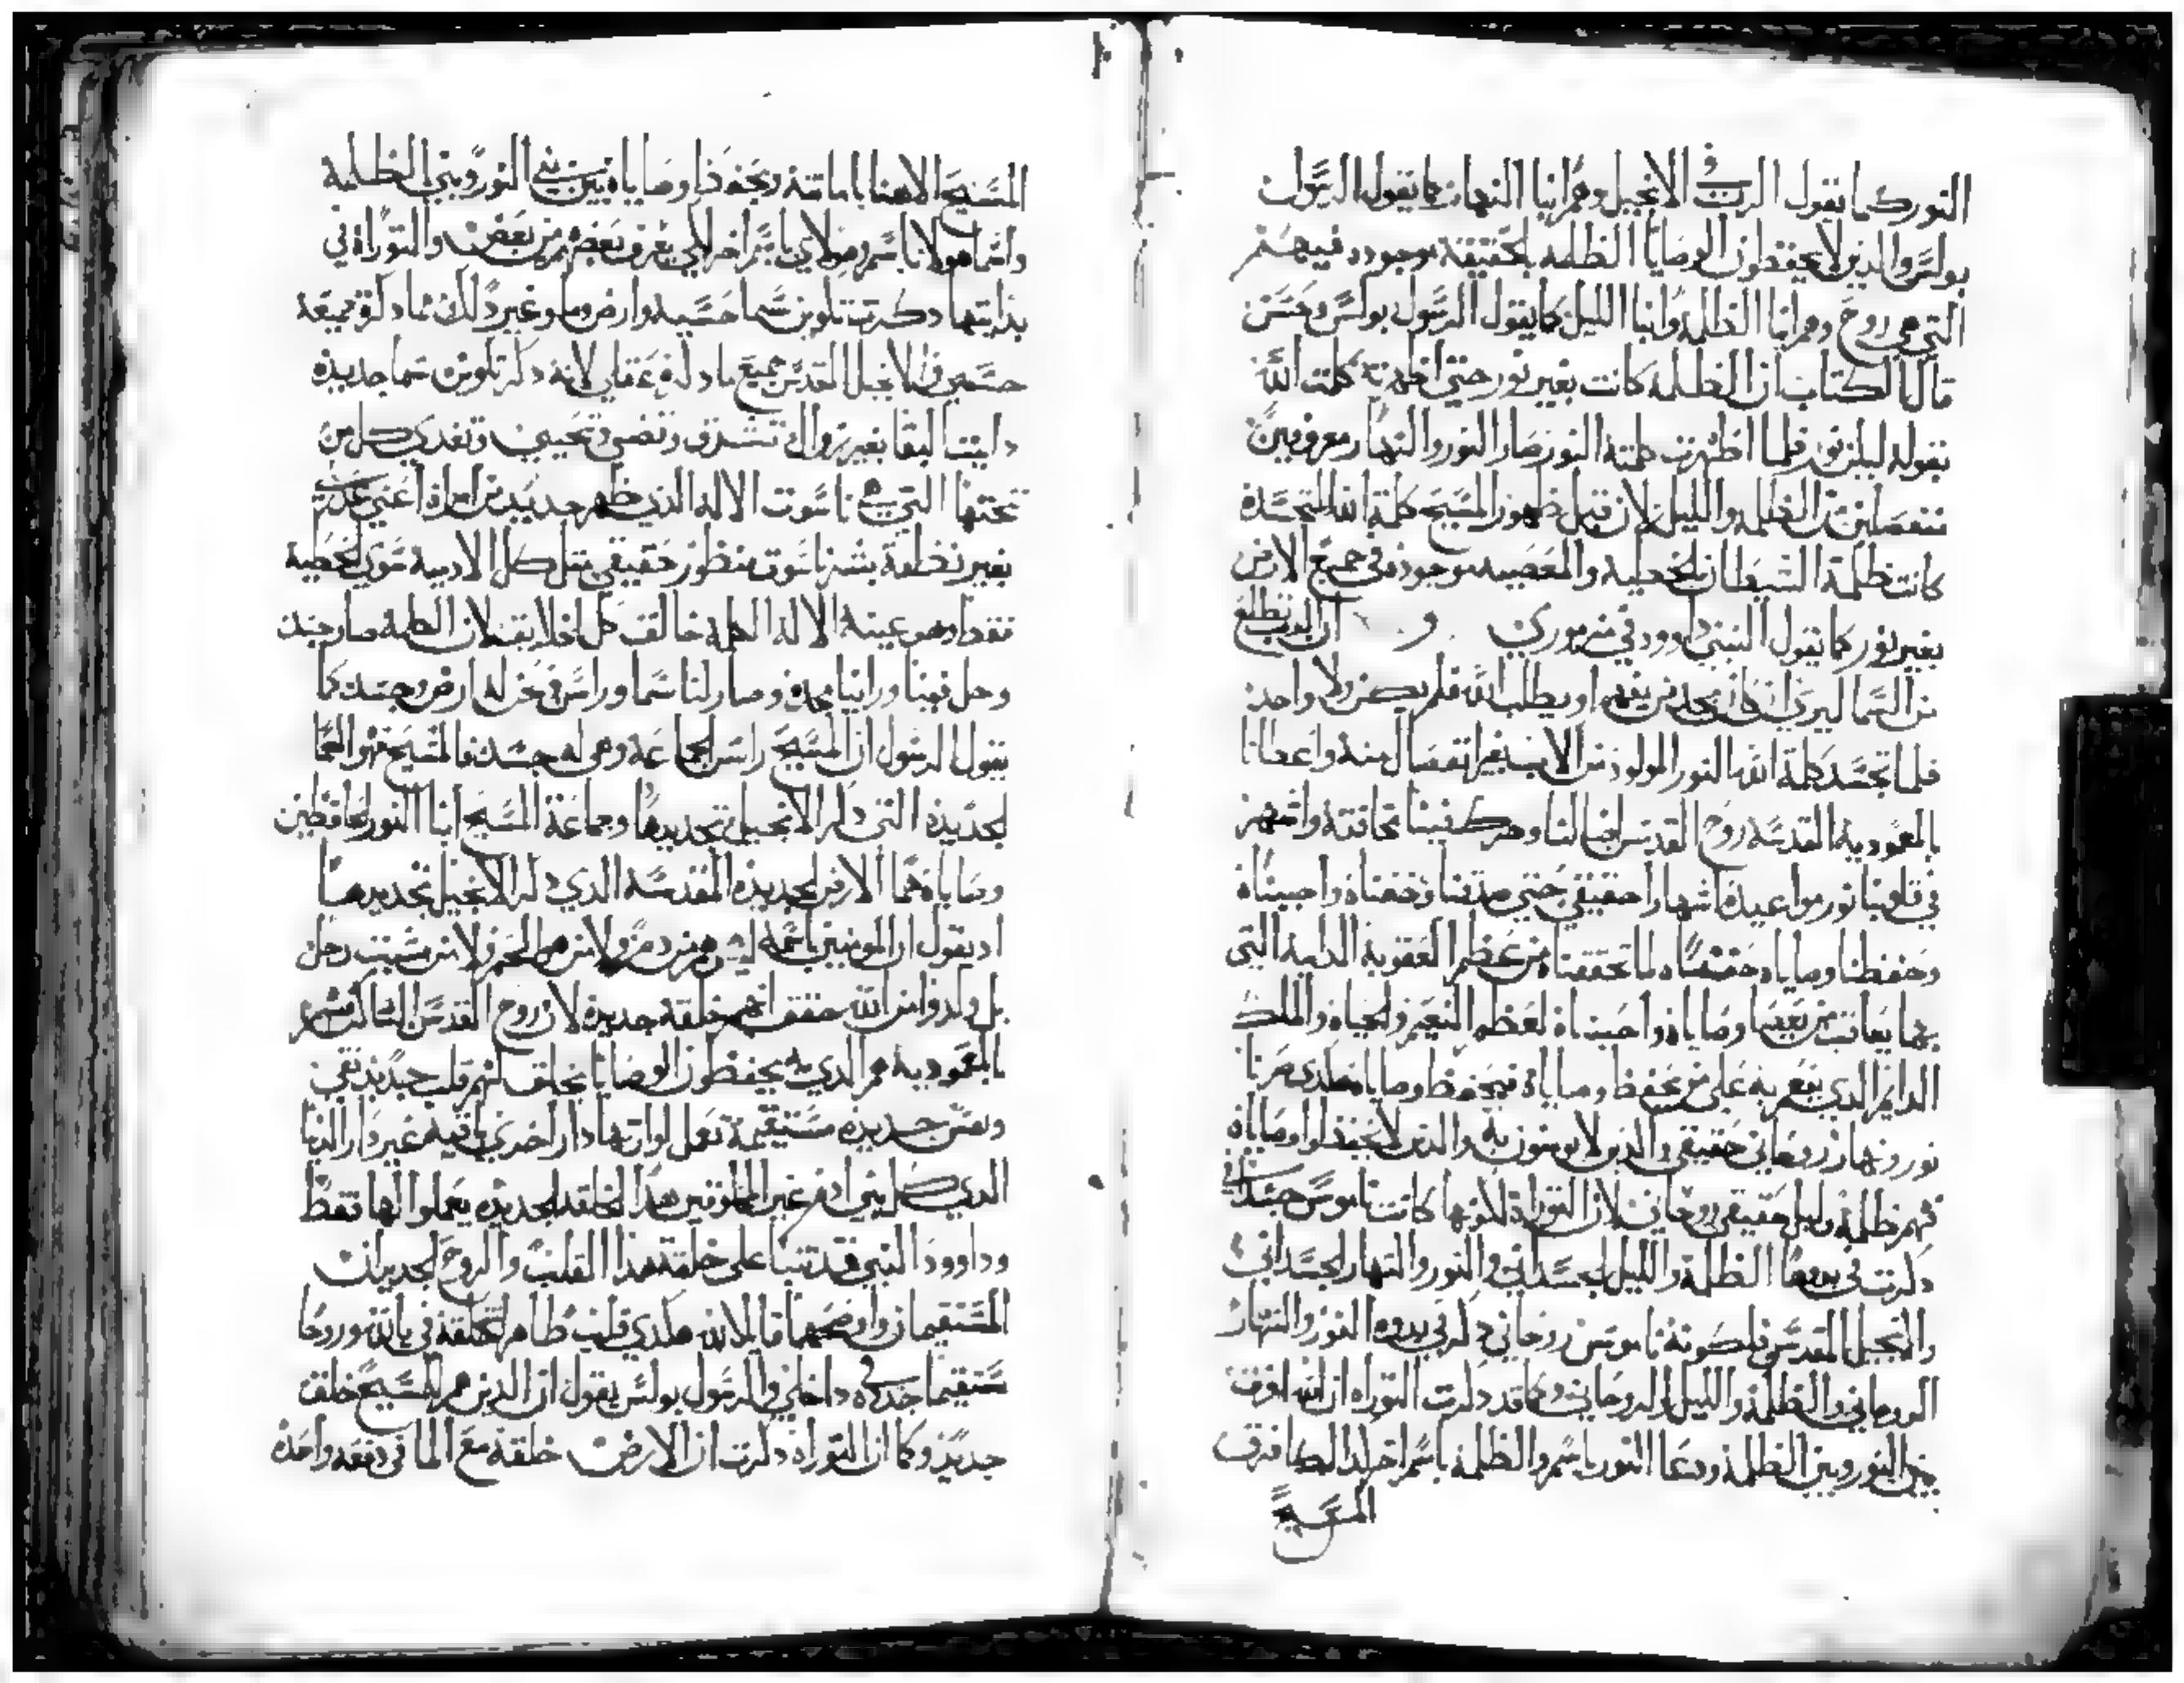 النور كما يقول الرب في الانجيل وهم ابنا النهار كما يقول الرسول
بولس والذين لا يحفظون الوصايا الظلمه بالحقيقة موجوده فيهم
التي هي روح وهم ابنا الظلمة وابنا الليل كما يقول الرسول بولس
قال الكتاب ان الظلمة كانت بغير نور حتى اظهرته كلمت الله
بقوله ليكن نور فلما اظهرت كلمته النور صار النور والنهار معروفين
منفصلين من الظلمه والليل لان قبل ظهور المسيح كلمة الله المتجسدة
كانت ظلمة الشيطان الخطيه والمعصيه موجوده في جميع الارض
بغير نور كما يقول النبي داوود في مزمور ان الرب تطلع
من السما ليرى ان كان يجد من يفهم او يطلب الله فلم يجد ولا واحد
فلما تجسد كلمة الله النور المولود من الاب بغير انفصال منه واعطانا
بالمعمودية المقدسه روح القدس
في قلوبنا نور مواعيده اشهارا حقيقي حتى صدقنا وخفناه واحببناه
وحفظنا وصاياه لما تحققناه من عظم العقوبة الدايمة التي
بها يعاقب من يعصا وصاياه واحببناه لعظم النعيم والحياه والملك
الدايم الذي ينعم به على من يحفظ وصاياه فيحفظ وصاياه هكدى صرنا
نور ونهار روحاني حقيقي والدين لا يومنون به والدين لا يحفظوا وصاياه
فهم ظلمة وليل حقيقي روحاني لان التوراة لكونها كانت ناموس جسداني
دكرت في بدوها الظلمة والليل الجسداني والنور والنهار الجسداني
والانجيل المقدس فلكونه ناموس روحاني دكر في بدوه النور والنهار
الروحاني والظلمة والليل الروحاني وكما قد دكرت التوراه ان الله افرق
بين النور وبين الظلمة ودعا النور باسم والظلمة باسم اخر فرق
المسيح
المسيح الاهنا بامانته وبحفظ وصاياه بين بني النور وبني الظلمة
واسماهولا باسم وهولاي باسم اخر لكي يعرف بعضهم من بعض والتوراة في
بدايتها دكرت تكوين سما حسيه وارض وما وغير دلك مما دكرته جميعه
حسي وفي الانجيل المقدس جميع ما دكره عقلي لانه دكر تكوين سما جديدة
دايمة البقا بغير زوال تشرق وتضي وتحيي وتغدي كل من
تحتها التي هي ناسوت الاله الذي ظهر جديد من امراة اعني عذري
بغير نطفة بشر ناسوت منظور حقيقي مثل كل الادمية سوى الخطية
فقط وهو عينه الاله الكلمة خالق كل الخلايق لان الكلمة صار جسد
وحل فينا وراينا مجده وصار لنا سما وراس ونحن له ارض وجسد كما
يقول الرسول ان المسيح راس الجماعة وهي له جسد فالمسيح هو السما
الجديدة التي دكر الانجيل تجديدها وجماعة المسيح ابنا النور الحافظين
وصاياه هما الارض الجديده المقدسه الدي دكر الانجيل تجديدها
اد يقول ان المومنين باسمه ليس هم من دم ولا من هوا لحم ولا من مشيت رجل
بل ولدوا من الله حقق انهم خلقة جديدة لان روح القدس
بالمعمودية هم الدي يحفظون الوصايا يخلق لهم قلب جديد نقي
ونفس جديده مستقيمة تعمل لوارتها دار اخرى باقية غير دار الدنيا
الدي كل بني ادم غير المخلوقين هدا الخلقه الجديده يعملوا لها فقط
وداوود النبي قد تنبا على خلقة هذا القلب والروح الجديدان
المستقيمان واوضحهما قايلا لله هكدى قلب طاهر تخلقه في يا الله وروحا
مستقيما جدده داخلي والرسول بولس يقول ان الدين هم للمسيح خلق
جديد وكما ان التوراة دكرت ان الارض خلقة مع الما في دفعه واحده